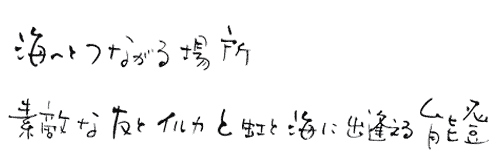 海へとつながる場所
素敵な友とイルカと虹と海に出逢える能登